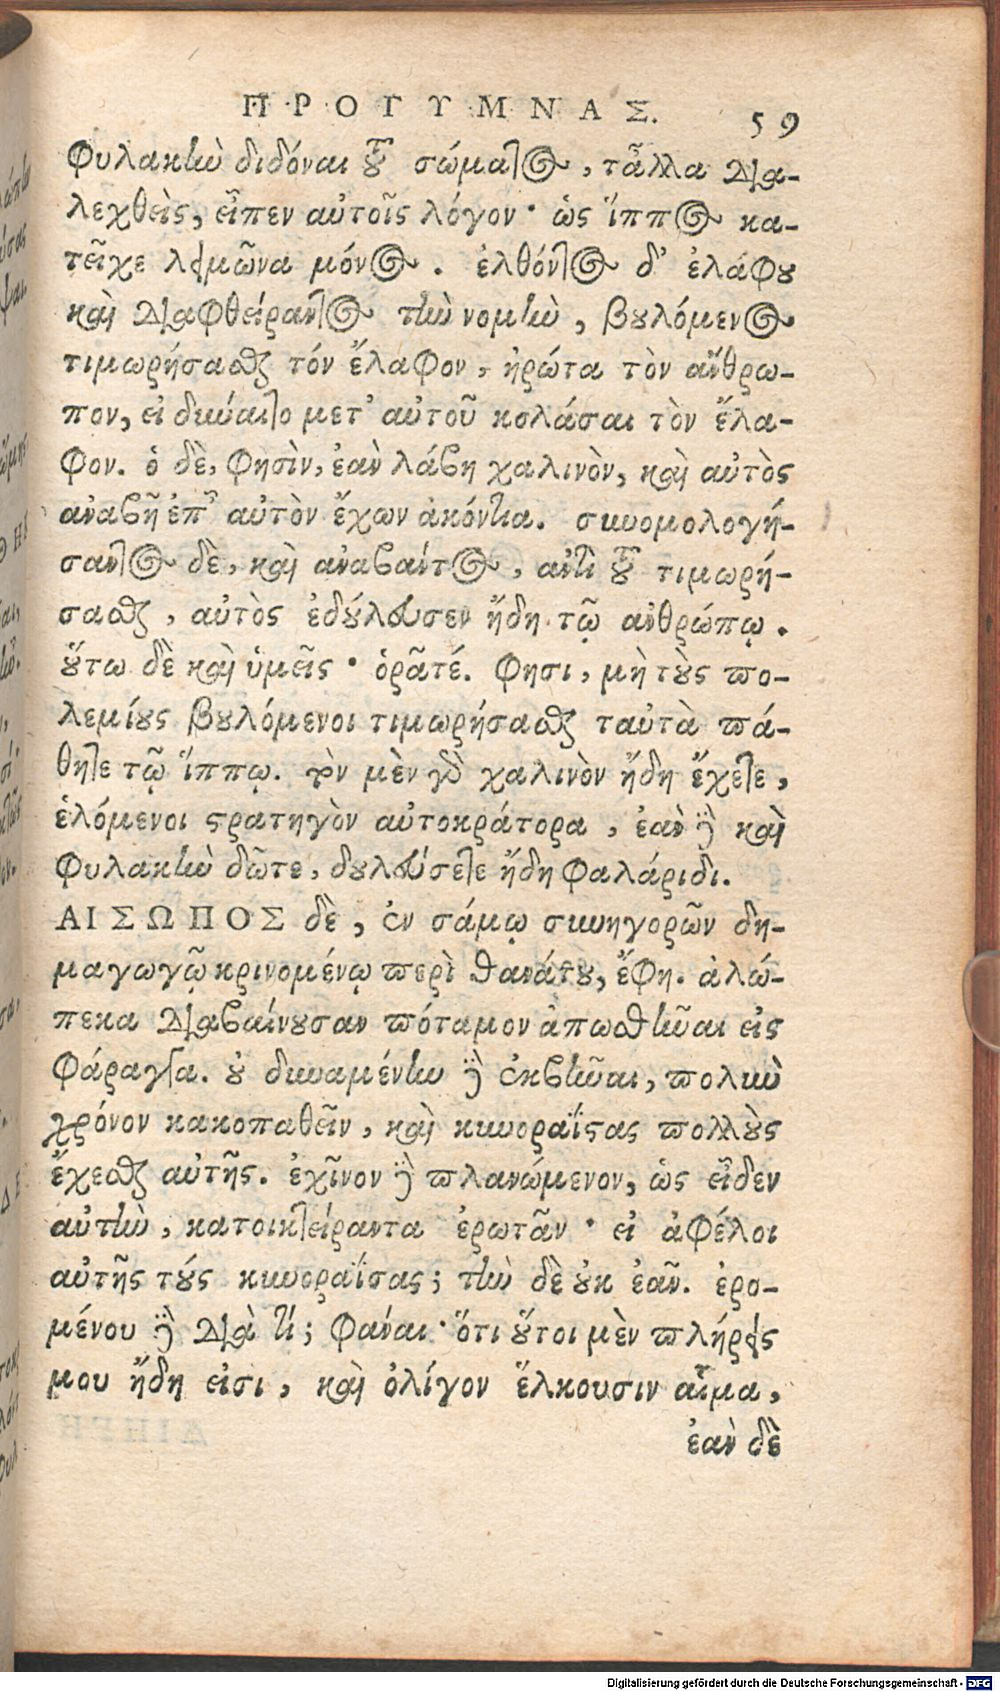 ΠΡΟΓΥΜΝΑΣ. 59
φυλακὴν διδόναι τοῦ σώματος, τἆλλα δια-
λεχθεὶς, εἶπεν αὐτοῖς λόγον· ὡς ἵππος κα-
τεῖχε λειμῶνα μόνος. ἐλθόντος δ' ἐλάφου
καὶ διαφθείραντος τὴν νομὴν, βουλόμενος
τιμωρήσασθαι τόν ἔλαφον, ἠρώτα τὸν ἄνθρω-
πον, εἰ δύναιτο μετ' αὐτοῦ κολάσαι τὸν ἔλα-
φον. ὁ δὲ, φησὶν, ἐαν λάβη χαλινὸν, καὶ αὐτὸς
ἀναβῆ ἐπ' αὐτὸν ἔχων ἀκόντια. συνομολογή-
σαντος δὲ, καὶ ἀναβάντος, ἀντὶ τοῦ τιμωρή-
σασθαι, αὐτὸς ἐδούλευσεν ἤδη τῷ ἀνθρώπῳ.
οὕτω δὲ καὶ ὑμεῖς· ὁρᾶτέ. φησι, μὴ τοὺς πο-
λεμίους βουλόμενοι τιμωρήσασθαι ταὐτὰ πά-
θητε τῷ ἵππῳ. τὸν μὲν γὰρ χαλινὸν ἤδη ἔχετε,
ἑλόμενοι στρατηγὸν αὐτοκράτορα, ἐὰν δὲ καὶ
φυλακὴν δῶτε, δουλεύσετε ἤδη Φαλάριδι.
ΑΙΣΩΠΟΣ δὲ, ἐν σάμῳ συνηγορῶν δη-
μαγωγῷ κρινομένῳ περὶ θανάτου, ἔφη. ἀλώ-
πεκα διαβαίνουσαν πόταμον ἀπωσθῆναι εἰς
φάραγγα. οὐ δυναμένην δὲ ἐκβῆναι, πολὺν
χρόνον κακοπαθεῖν, καὶ κυνοραΐστας πολλοὺς
ἔχεσθαι αὐτῆς. ἐχῖνον δὲ πλανώμενον, ὡς εἶδεν
αὐτὴν, κατοικτείραντα ἐρωτᾶν· εἰ ἀφέλοι
αὐτῆς τούς κυνοραΐστας; τὴν δὲ οὐκ ἐαν͂. ἐρο-
μένου δὲ διὰ τί; φάναι· ὅτι οὕτοι μὲν πλήρεις
μου ἤδη εἰσι, καὶ ὀλίγον ἕλκουσιν αἷμα,
ἐὰν δὲ
Digitalisierung gefördert durch die Deutsche Forschungsgemeinschaft - DFG